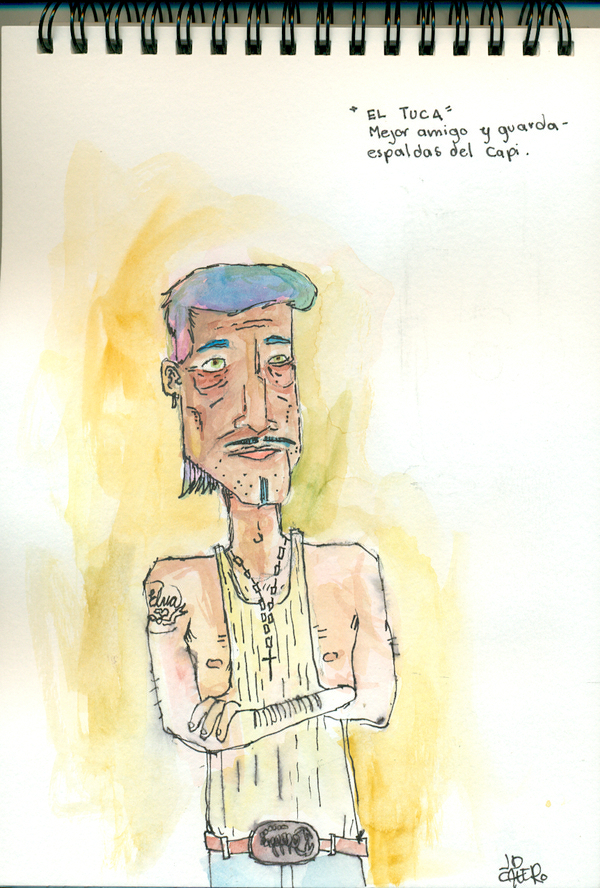 "EL TUCA"
Mejor amigo y guarda-
espaldas del Capi.
Elua
JD
CALERO